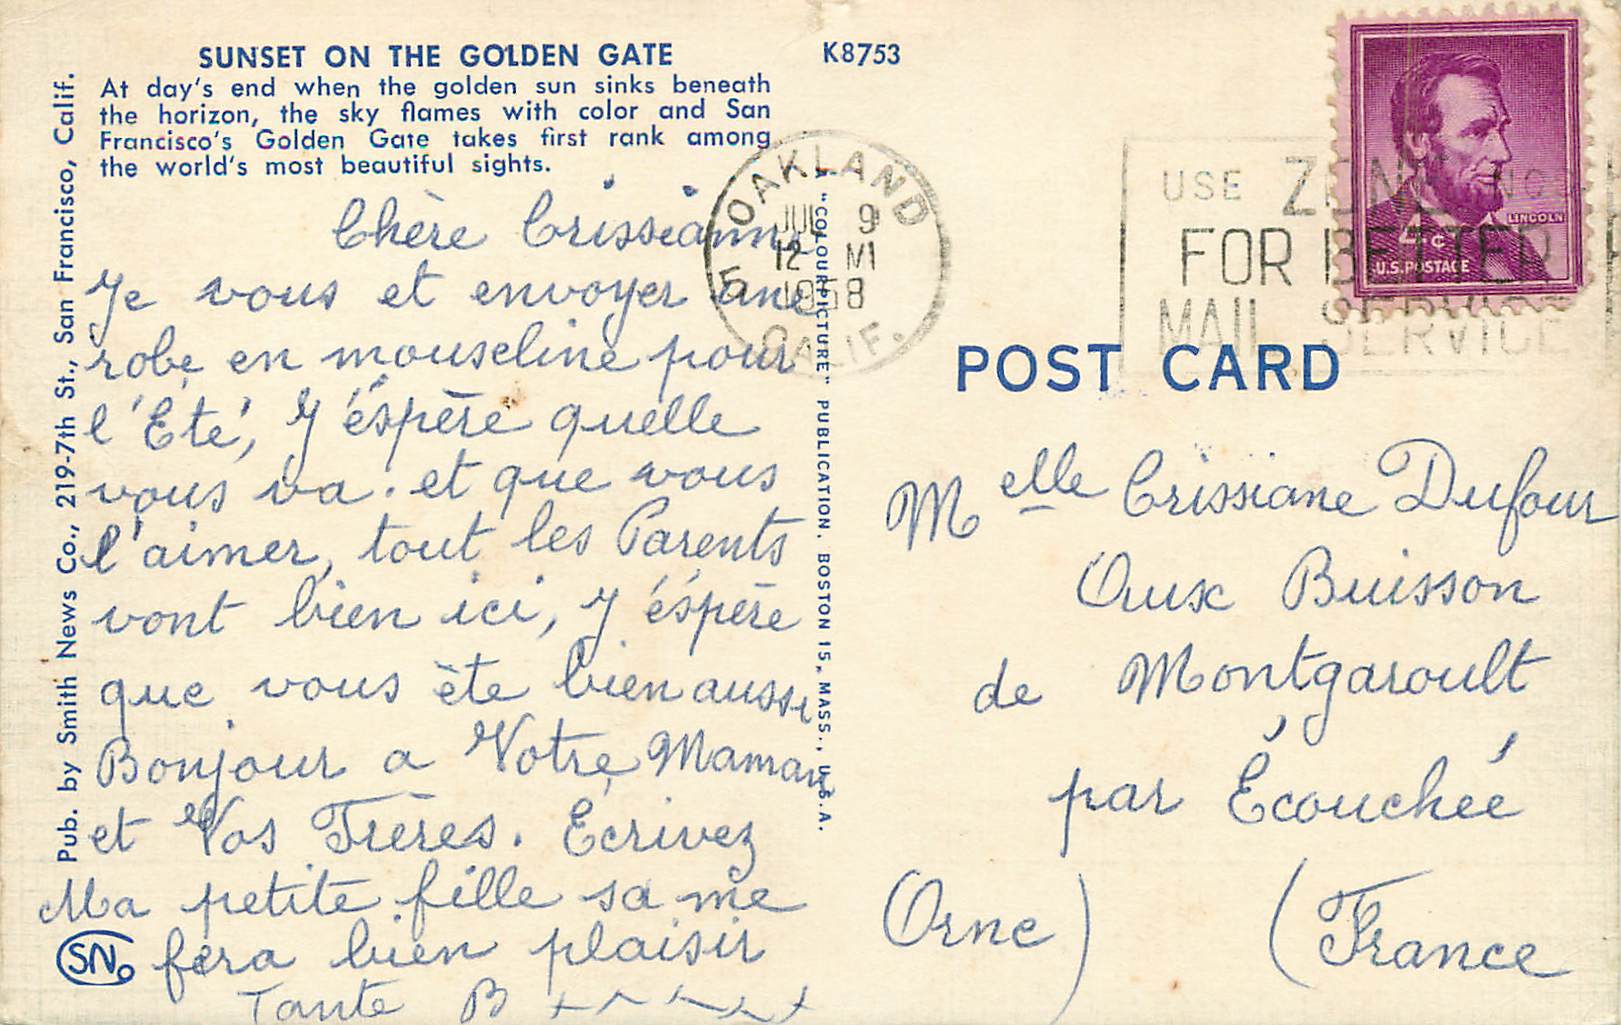 SUNSET ON THE GOLDEN GATE
At day's end when the golden sun sinks beneath
the horizon, the sky flames with color and San
Francisco's Golden Gate takes first rank among
the world's most beautiful sights.
K8753
Pub. by Smith News Co., 219-7th St., San Francisco, Calif.
Chère Crissianne
Je vous et envoyer une
robe en mouseline pour
l'Eté, J'éspère quelle
vous va. et que vous
l'aimer, tout les Parents
vont bien ici, J'éspère
que vous ète bien aussi
Bonjour a Votre Maman
et Vos Frères. Ècrivez
Ma petite fille sa me
fera bien plaisir
Tante B
SN
"COLOURPICTURE" PUBLICATION, BOSTON 15, MASS., U.S.A.
OAKLAND
5
JUL 9
12 M
1958
CALIF.
USE ZONE NO
FOR BETTER
MAIL SERVICE
LINCOLN
4¢
U.S. POSTAGE
POST CARD
Melle Crissiane Dufour
Aux Buisson
de Montgaroult
par Écouchéé
(Orne)
(France